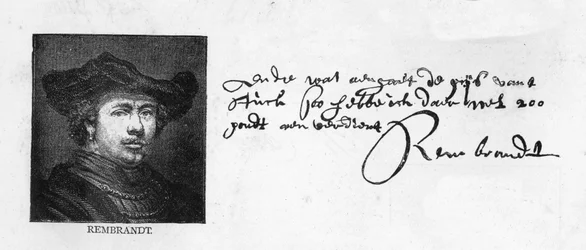 REMBRANDT.
Ende wat aengaet de prijs vant
stuck soo hebbe ick daer wel 200
pondt aen verdient
Rembrandt